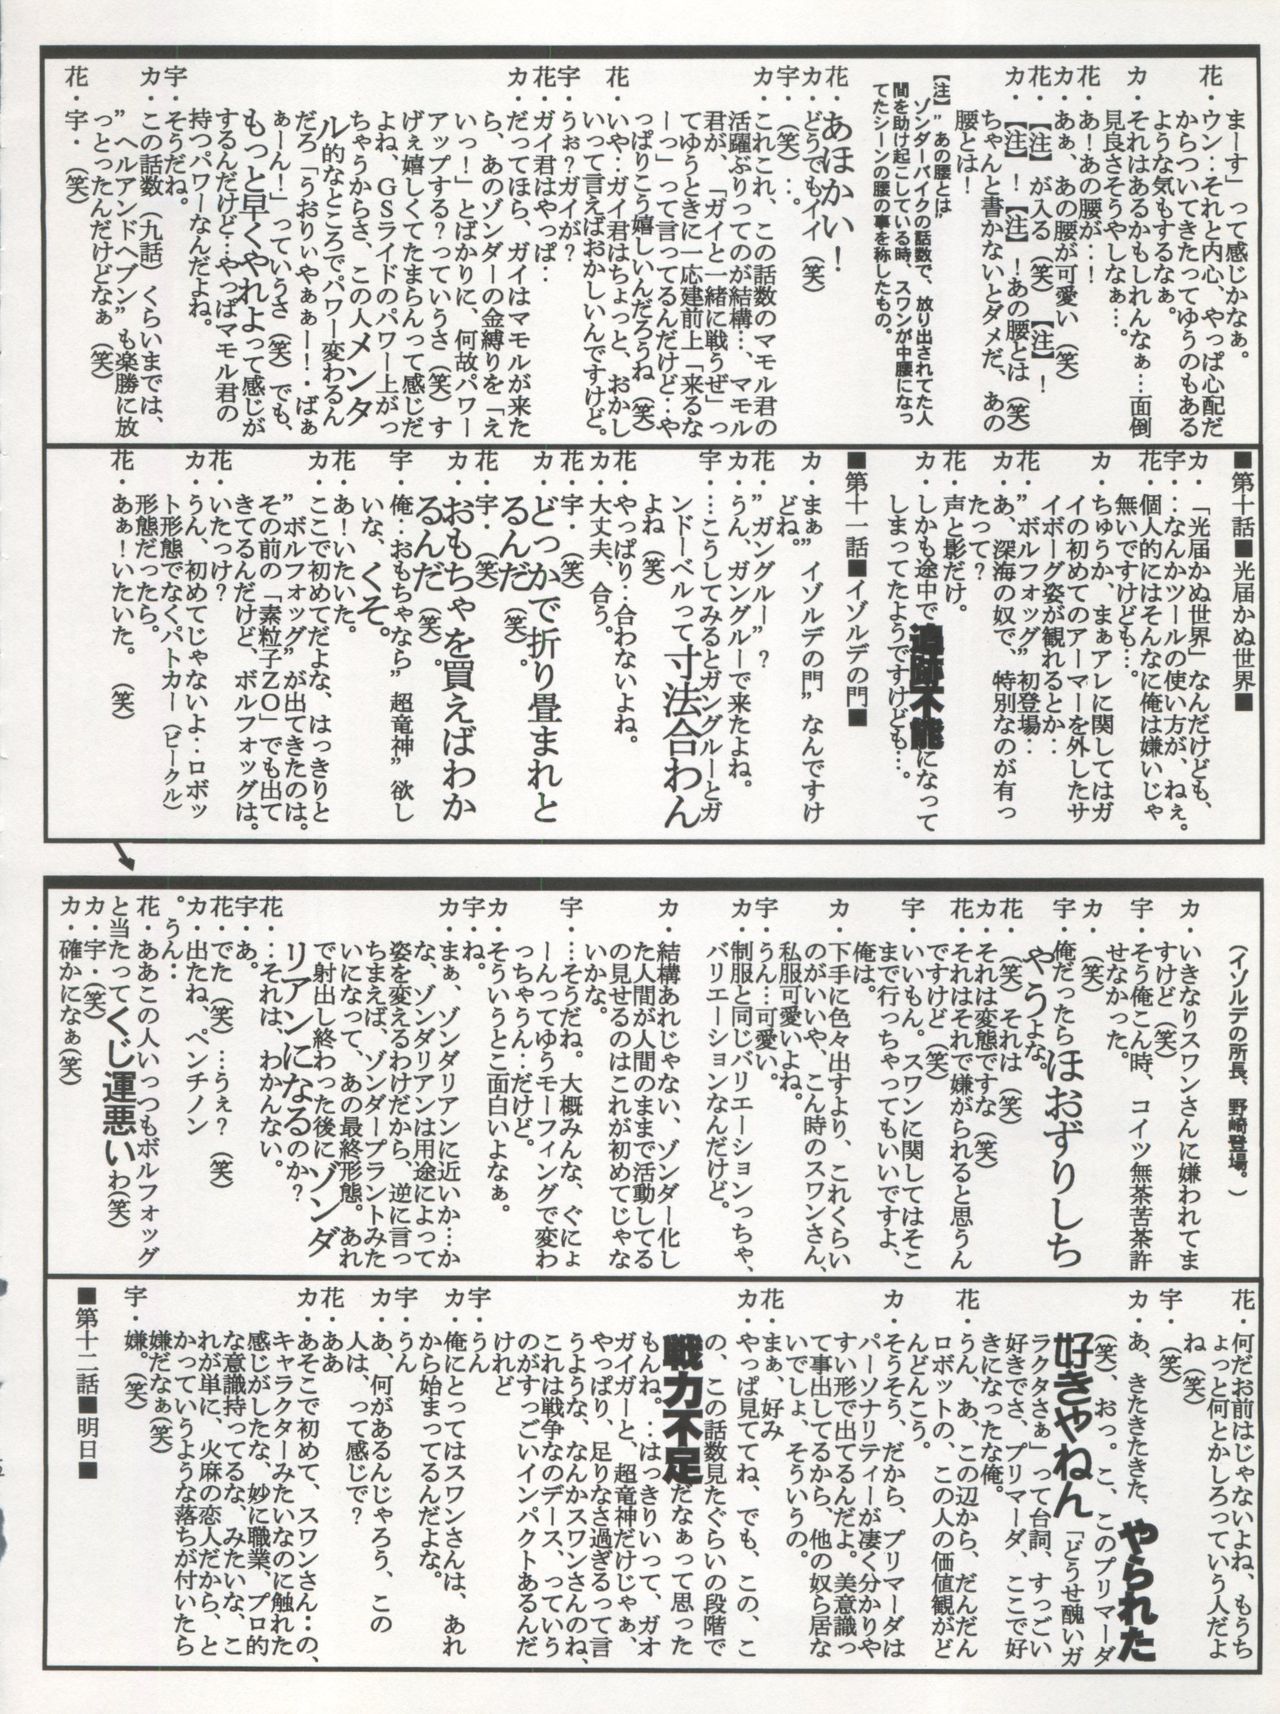 まーす」って感じかなぁ。
花・ウン‥それと内心、やっぱ心配だ
からついてきたってゆうのもある
ような気もするなぁ。
カ・それはあるかもしれんなぁ…面倒
見良さそうやしなぁ…。
花・あ！あの腰が‥！
カ・あぁ、あの腰が可愛い（笑）
花・【注】が入る（笑）【注】！
カ・【注】！【注】！あの腰とは（笑）
ちゃんと書かないとダメだ、あの
腰とは！
【注】”あの腰とは”
ゾンダーバイクの話数で、放り出されてた人
間を助け起こしている時、スワンが中腰になっ
てたシーンの腰の事を称したもの。
花・あほかい！
カ・どうでもイイ（笑）
宇・（笑）‥。
カ・これこれ、この話数のマモル君の
活躍ぶりってのが結構…、マモル
君が、「ガイと一緒に戦うぜ」っ
てゆうときに一応建前上「来るな
ーっ」って言ってるんだけど‥や
っぱりこう嬉しいんだろうね（笑）
花・いや‥ガイ君はちょっと、おかし
いって言えばおかしいんですけど。
宇・うぉ？ガイが？
花・ガイ君はやっぱ‥
カ・だってほら、ガイはマモルが来た
ら、あのゾンダーの金縛りを「え
いっ！」とばかりに、何故パワー
アップする？っていうさ（笑）す
げぇ嬉しくてたまらんって感じだ
よね、GSライドのパワー上がっ
ちゃうからさ、この人メンタ
ル的なところでパワー変わるん
だろ「うおりぃやぁぁー！・ばぁ
ぁーん！」っていうさ（笑）でも、
もっと早くやれよって感じが
するんだけど…やっぱマモル君の
持つパワーなんだよね。
宇・そうだね。
カ・この話数（九話）くらいまでは、
”ヘルアンドヘブン”も楽勝に放
っとったんだけどなぁ（笑）
花・宇・（笑）
■第十話■光届かぬ世界■
カ・「光届かぬ世界」なんだけども、
宇・‥なんかツールの使い方が、ねぇ。
花・個人的にはそんなに俺は嫌いじゃ
無いですけども…。
カ・ちゅうか、まぁアレに関してはガ
イの初めてのアーマーを外したサ
イボーグ姿が観れるとか‥
花・”ボルフォッグ”初登場‥
カ・あ、深海の奴で、特別なのが有っ
たって？
花・声と影だけ。
カ・しかも途中で追跡不能になって
しまってたようですけども…。
■第十一話■イゾルデの門■
カ・まぁ”イゾルデの門”なんですけ
どね。
花・”ガングルー”？
カ・うん、ガングルーで来たよね。
宇・…こうしてみるとガングルーとガ
ンドーベルって寸法合わん
よね（笑）
花・やっぱり‥合わないよね。
カ・大丈夫、合う。
花・宇・（笑）
カ・どっかで折り畳まれと
るんだ（笑）。
花・宇・（笑）
カ・おもちゃを買えばわか
るんだ（笑）。
宇・俺‥おもちゃなら”超竜神”欲し
いな、くそ。
花・あ！いたいた。
カ・ここで初めてだよな、はっきりと
”ボルフォッグ”が出てきたのは。
その前の「素粒子ZO」でも出て
きてるんだけど、ボルフォッグは。
花・いたっけ？
カ・うん、初めてじゃないよ‥ロボッ
ト形態でなくパトカー（ビークル）
形態だったら。
花・あぁ！いたいた。（笑）
（イゾルデの所長、野崎登場。）
カ・いきなりスワンさんに嫌われてま
すけど（笑）
宇・そう俺こん時、コイツ無茶苦茶許
せなかった。
カ・（笑）
宇・俺だったらほおずりしち
ゃうよな。
花・（笑）それは（笑）
カ・それは変態ですな（笑）
花・それはそれで嫌がられると思うん
ですけど（笑）
宇・いいもん。スワンに関してはそこ
まで行っちゃってもいいですよ、
俺は。
カ・下手に色々出すより、これくらい
のがいいや、こん時のスワンさん、
私服可愛いよね。
宇・うん…可愛い。
カ・制服と同じバリエーションっちゃ、
バリエーションなんだけど。
カ・結構あれじゃない、ゾンダー化し
た人間が人間のままで活動してる
の見せるのはこれが初めてじゃな
いかな。
宇・…そうだね。大概みんな、ぐにょ
ーんってゆうモーフィングで変わ
っちゃうん…だけど。
カ・そういうとこ面白いよなぁ。
宇・ね。
カ・まぁ、ゾンダリアンに近いか…か
な、ゾンダリアンは用途によって
姿を変えるわけだから、逆に言っ
ちまえば、ゾンダープラントみた
いになって、あの最終形態。あれ
で射出し終わった後にゾンダ
リアンになるのか？
花・…それは、わかんない。
宇・あ。
花・でた（笑）…うぇ？（笑）
カ・出たね、ペンチノン
。うん‥
花・ああこの人いっつもボルフォッグ
と当たってくじ運悪いわ(笑)
カ・宇・(笑)
カ・確かになぁ(笑)
花・何だお前はじゃないよね、もうち
ょっと何とかしろっていう人だよ
ね（笑）
宇・（笑）
カ・あ、きたきたきた、やられた
（笑）、おっ。こ、このプリマーダ
好きやねん「どうせ醜いガ
ラクタさぁ」って台詞、すっごい
好きでさ、プリマーダ、ここで好
きになったな俺。
花・うん、あ、この辺から、だんだん
ロボットの、この人の価値観がど
んどんこう。
カ・そうそう、だから、プリマーダは
パーソナリティーが凄く分かりや
すい形で出てるんだよ。美意識っ
て事出してるから、他の奴ら居な
いでしょ、そういうの。
花・まぁ、好み
カ・やっぱ見ててね、でも、この、こ
の、この話数見たぐらいの段階で
戦力不足だなぁって思った
もんね。‥はっきりいって、ガオ
ガイガーと、超竜神だけじゃぁ、
やっぱり、足りなさ過ぎるって言
うような、なんかスワンさんのね、
これは戦争なのデース、っていう
のがすっごいインパクトあるんだ
けれど
宇・うん
カ・俺にとってはスワンさんは、あれ
から始まってるんだよな。
宇・うん
カ・あ、何があるんじゃろう、この
人は、って感じで？
花・ああ
カ・あそこで初めて、スワンさん‥の、
キャラクターみたいなのに触れた
感じがしたな、妙に職業、プロ的
な意識持ってるな、みたいな、こ
れが単に、火麻の恋人だから、と
かっていうような落ちが付いたら
嫌だなぁ(笑)
宇・嫌。（笑）
■第十二話■明日■